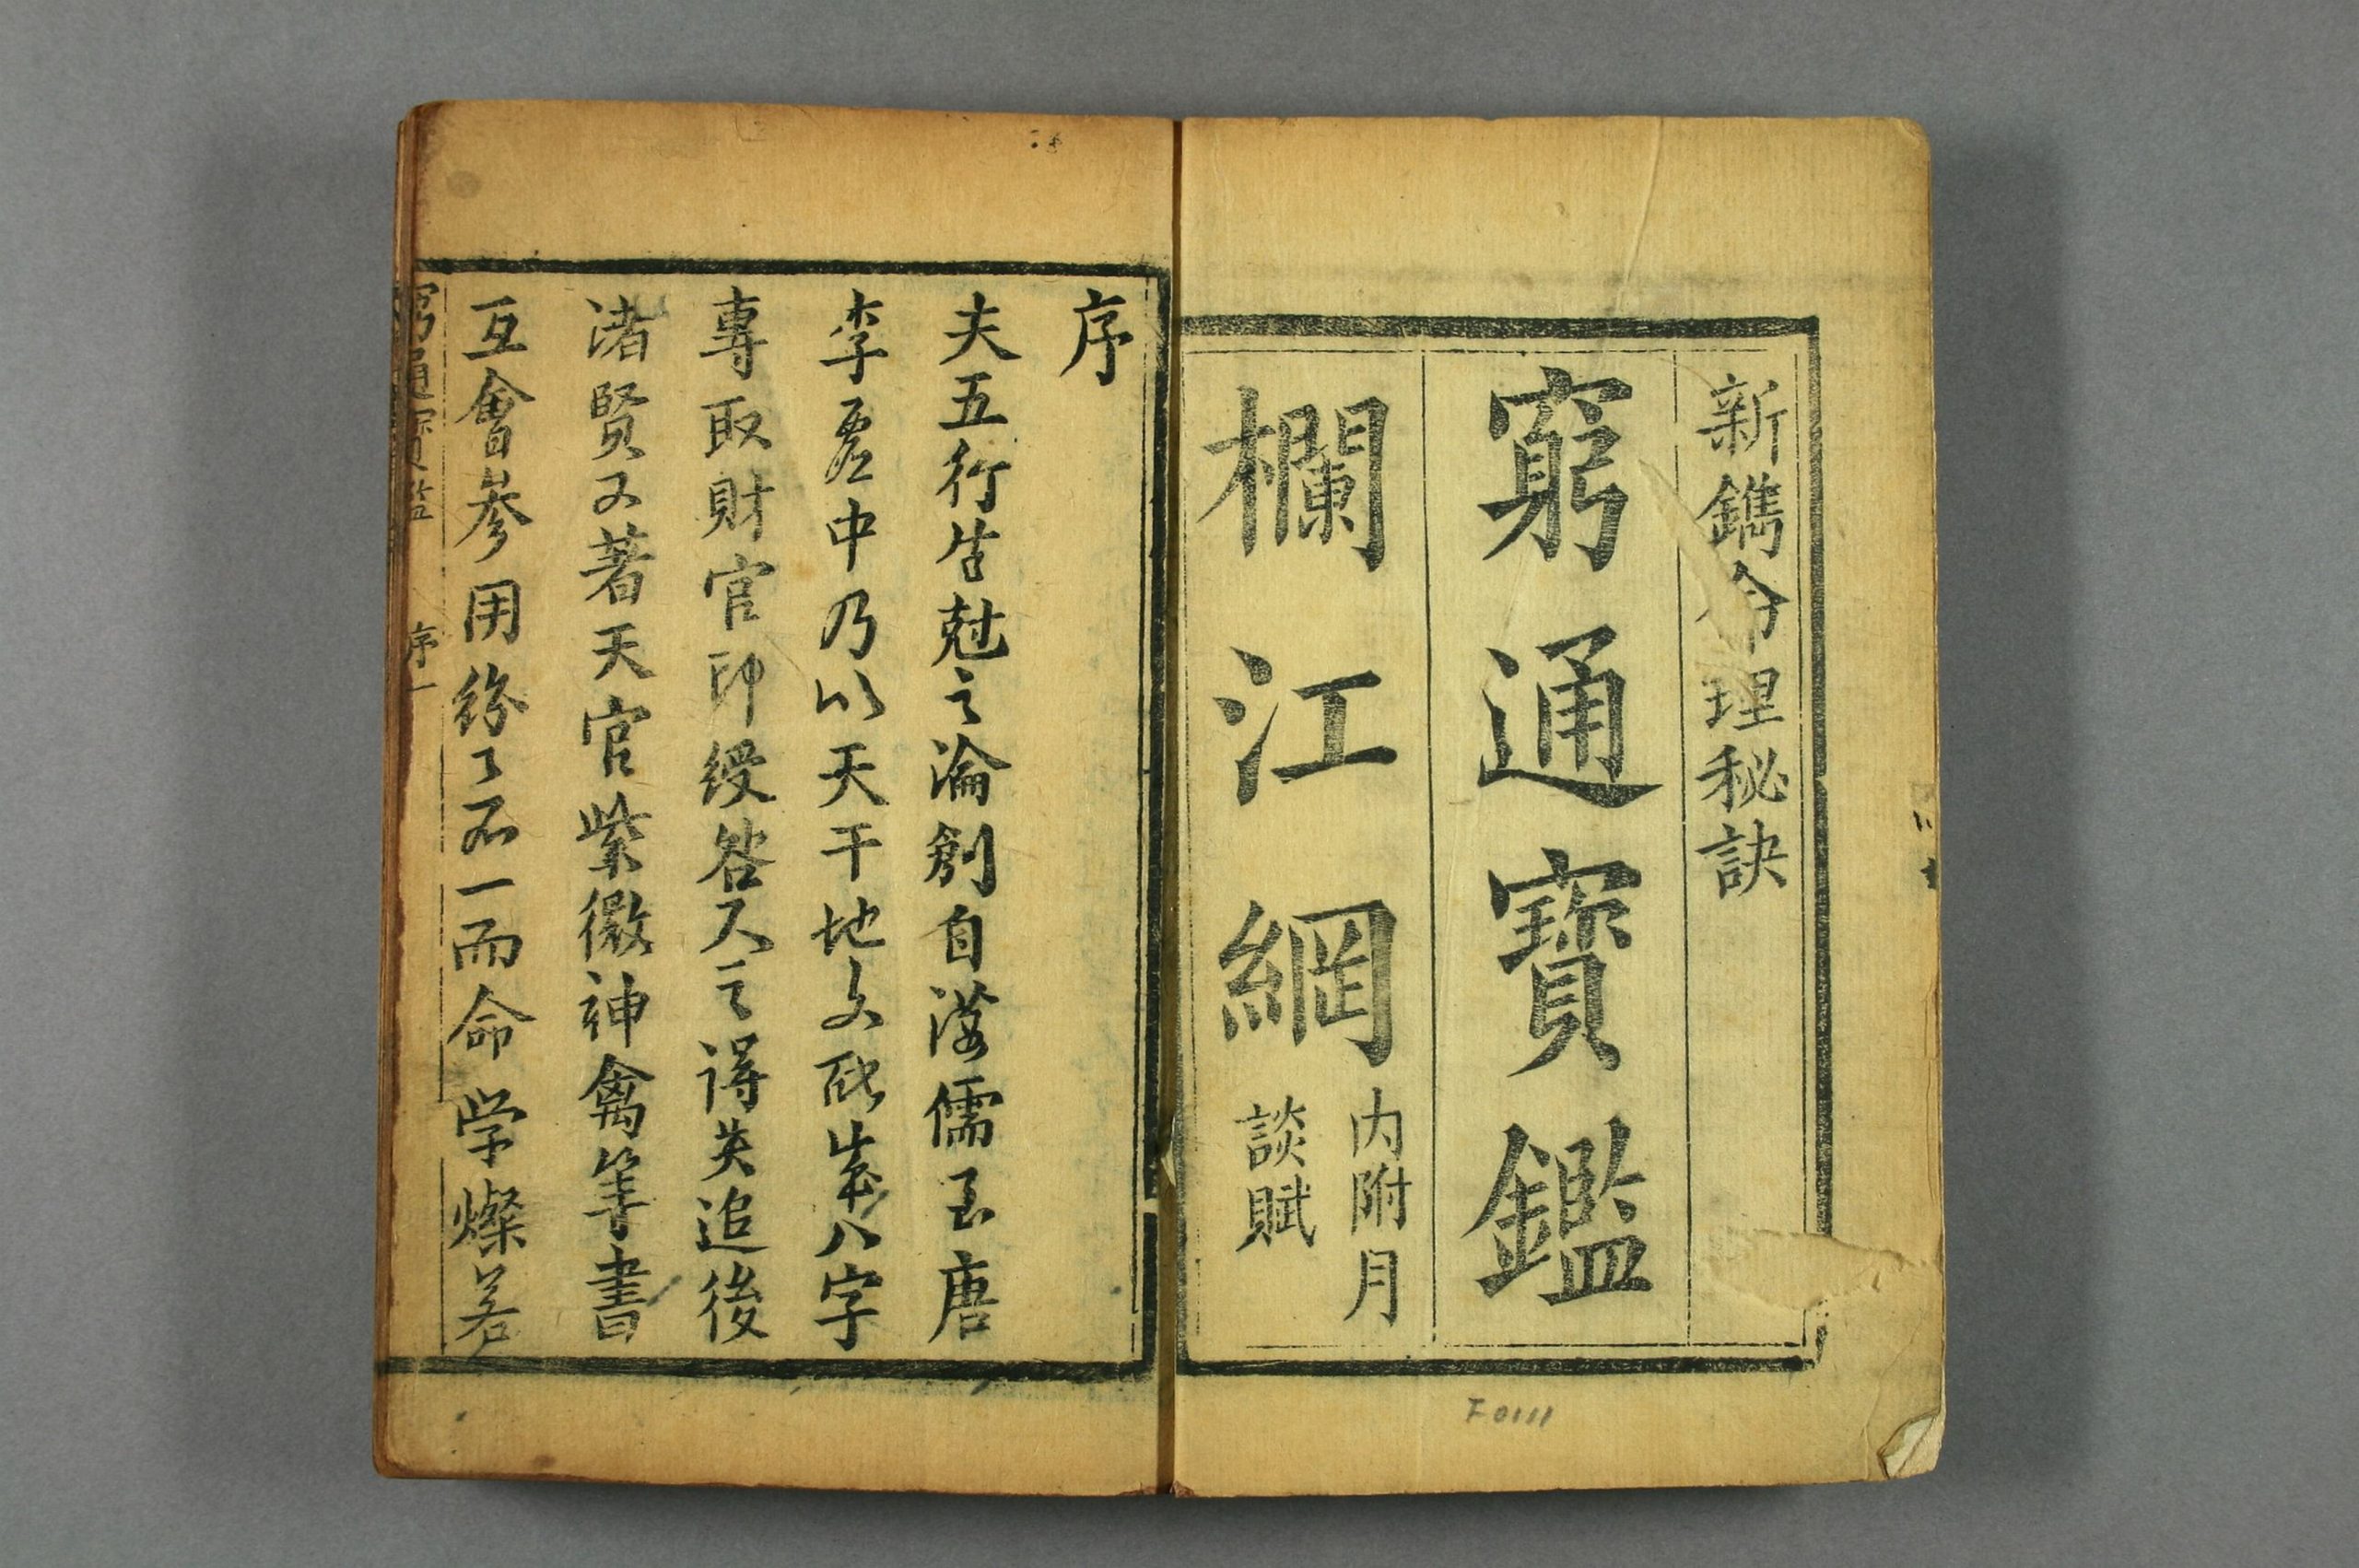 新鐫命理秘訣
窮通寶鑑
欄江網
内附月
談賦
序
夫五行生尅之論創自漢儒至唐
李虛中乃以天干地支配成八字
專取財官印綬答人之得失迨後
渚賢又著天官紫微神禽等書
互會參用紛〻不一而命学燦若
窮通寶鑑 序 一
F0111